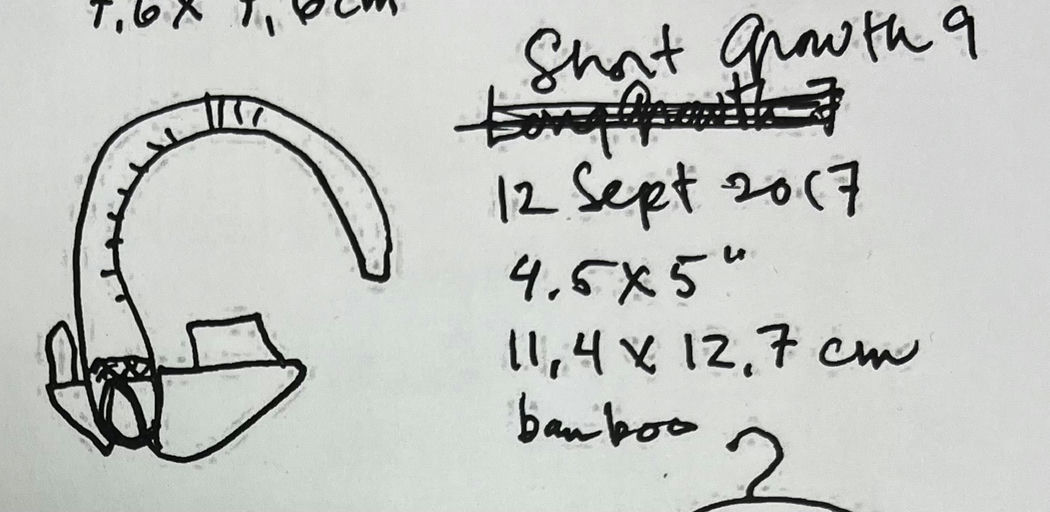 7,6 x 7,6 cm
Short Growth 9
12 Sept 2017
4.5 x 5"
11,4 x 12,7 cm
bamboo